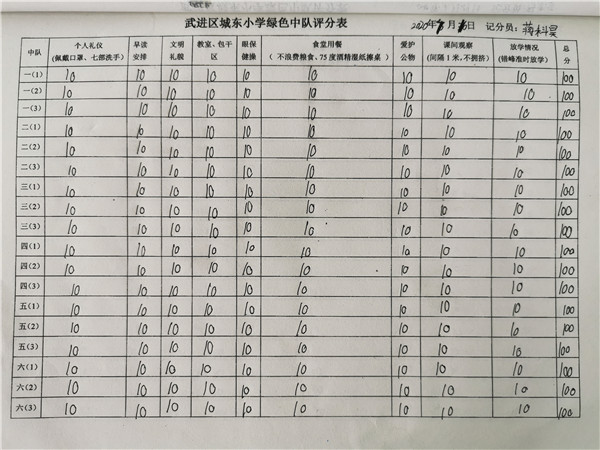 武进区城东小学绿色中队评分表
2020年 月 日 记分员：蒋科昊
中队 个人礼仪 早读 文明 教室、包干 眼保 食堂用餐 爱护 课间观察 放学情况 总
(佩戴口罩、七部洗手) 安排 礼貌 区 健操 (不浪费粮食、75度酒精湿纸擦桌) 公物 (间隔1米,不拥挤) (错峰准时放学) 分
一(1) 10 10 10 10 10 10 10 10 10 100
一(2) 10 10 10 10 10 10 10 10 10 100
一(3) 10 10 10 10 10 10 10 10 10 100
二(1) 10 10 10 10 10 10 10 10 10 100
二(2) 10 10 10 10 10 10 10 10 10 100
二(3) 10 10 10 10 10 10 10 10 10 100
三(1) 10 10 10 10 10 10 10 10 10 100
三(2) 10 10 10 10 10 10 10 10 10 100
三(3) 10 10 10 10 10 10 10 10 10 100
四(1) 10 10 10 10 10 10 10 10 10 100
四(2) 10 10 10 10 10 10 10 10 10 100
四(3) 10 10 10 10 10 10 10 10 10 100
五(1) 10 10 10 10 10 10 10 10 10 100
五(2) 10 10 10 10 10 10 10 10 10 100
五(3) 10 10 10 10 10 10 10 10 10 100
六(1) 10 10 10 10 10 10 10 10 10 100
六(2) 10 10 10 10 10 10 10 10 10 100
六(3) 10 10 10 10 10 10 10 10 10 100